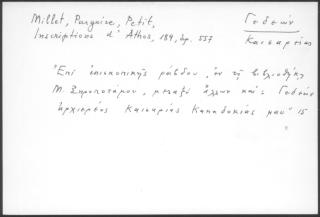 Millet, Pargoire, Petit,
Inscriptions d' Athos, 184, ἀρ. 557
Γεδεὼν
Καισαρείας
"Ἐπὶ ἐπισκοπικῆς ράβδου, ἐν τῇ βιβλιοθήκῃ
Μ. Ξηροποτάμου, μεταξὺ ἄλλων καὶ: Γεδεὼν
ἀρχιερέως Καισαρίας Καπαδοκίας μαυ" 15